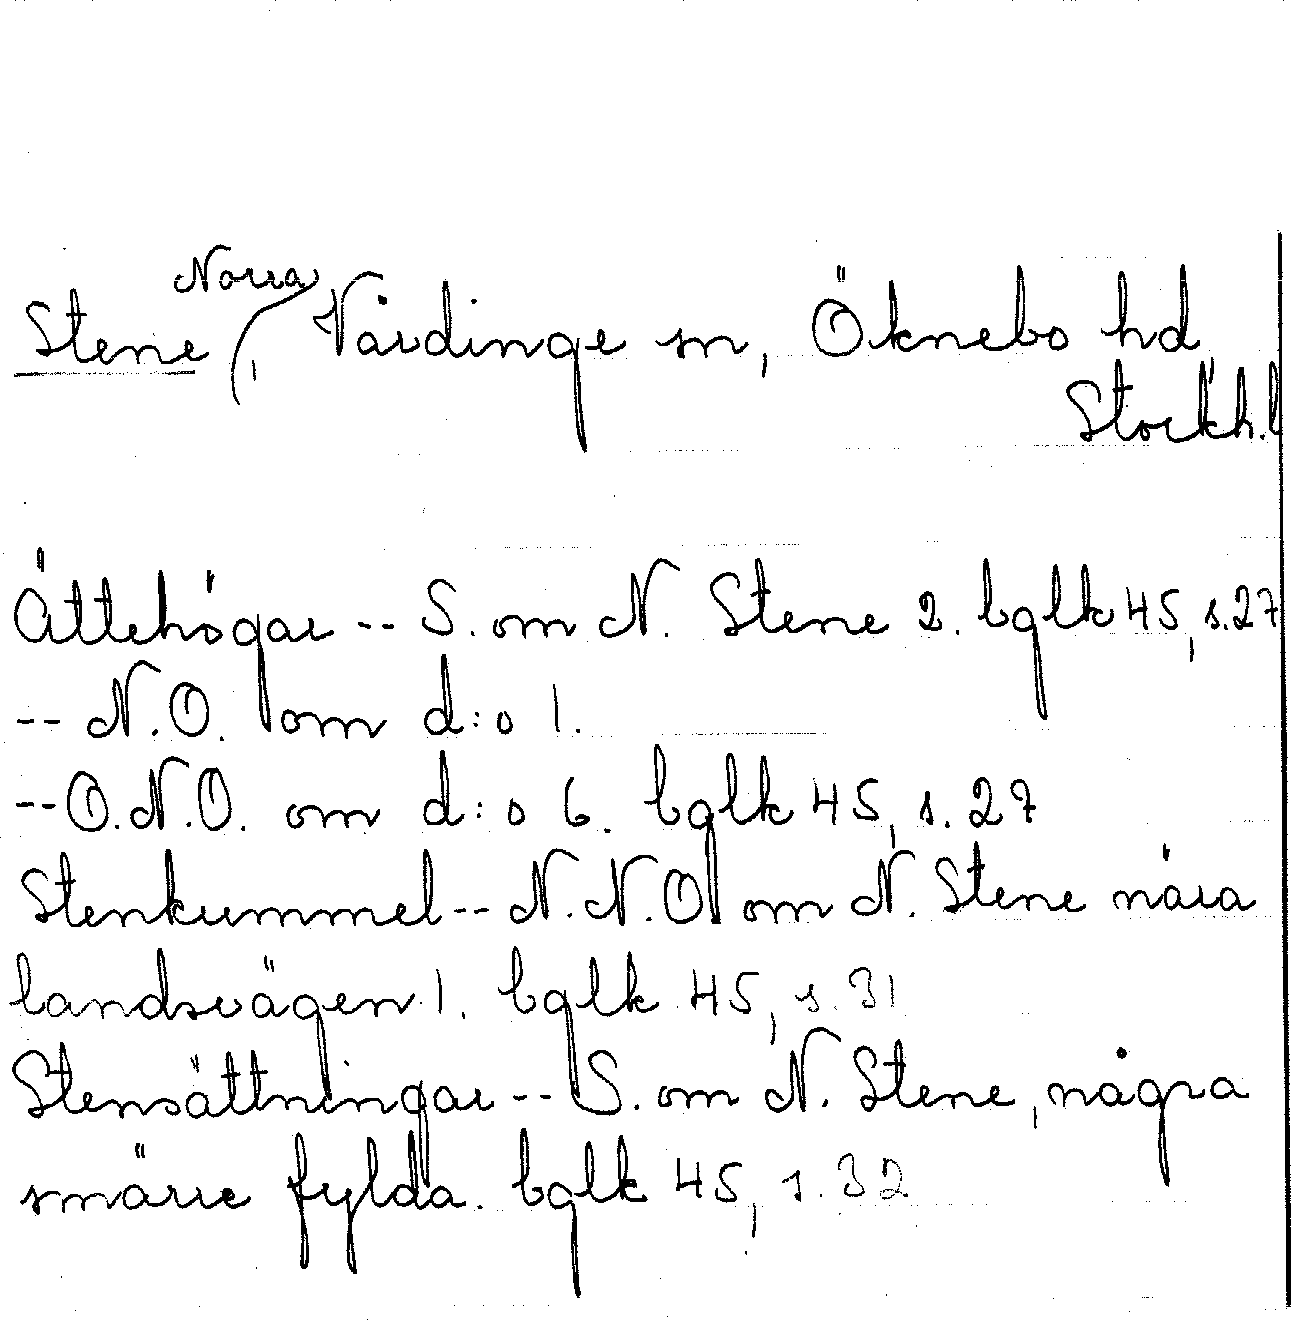 Norra
Stene, Vårdinge sn, Öknebo hd,
Stockh.l
Ättehögar -- S. om N. Stene 2. bglk 45, s.27
-- N.O. om d:o 1.
-- O.N.O. om d:o 6. bglk 45, s.27
Stenkummel -- N.N.O. om N. Stene nära
landsvägen 1. bglk 45, s.31
Stensättningar -- S. om N. Stene, några
smärre fylda. bglk 45, s.32